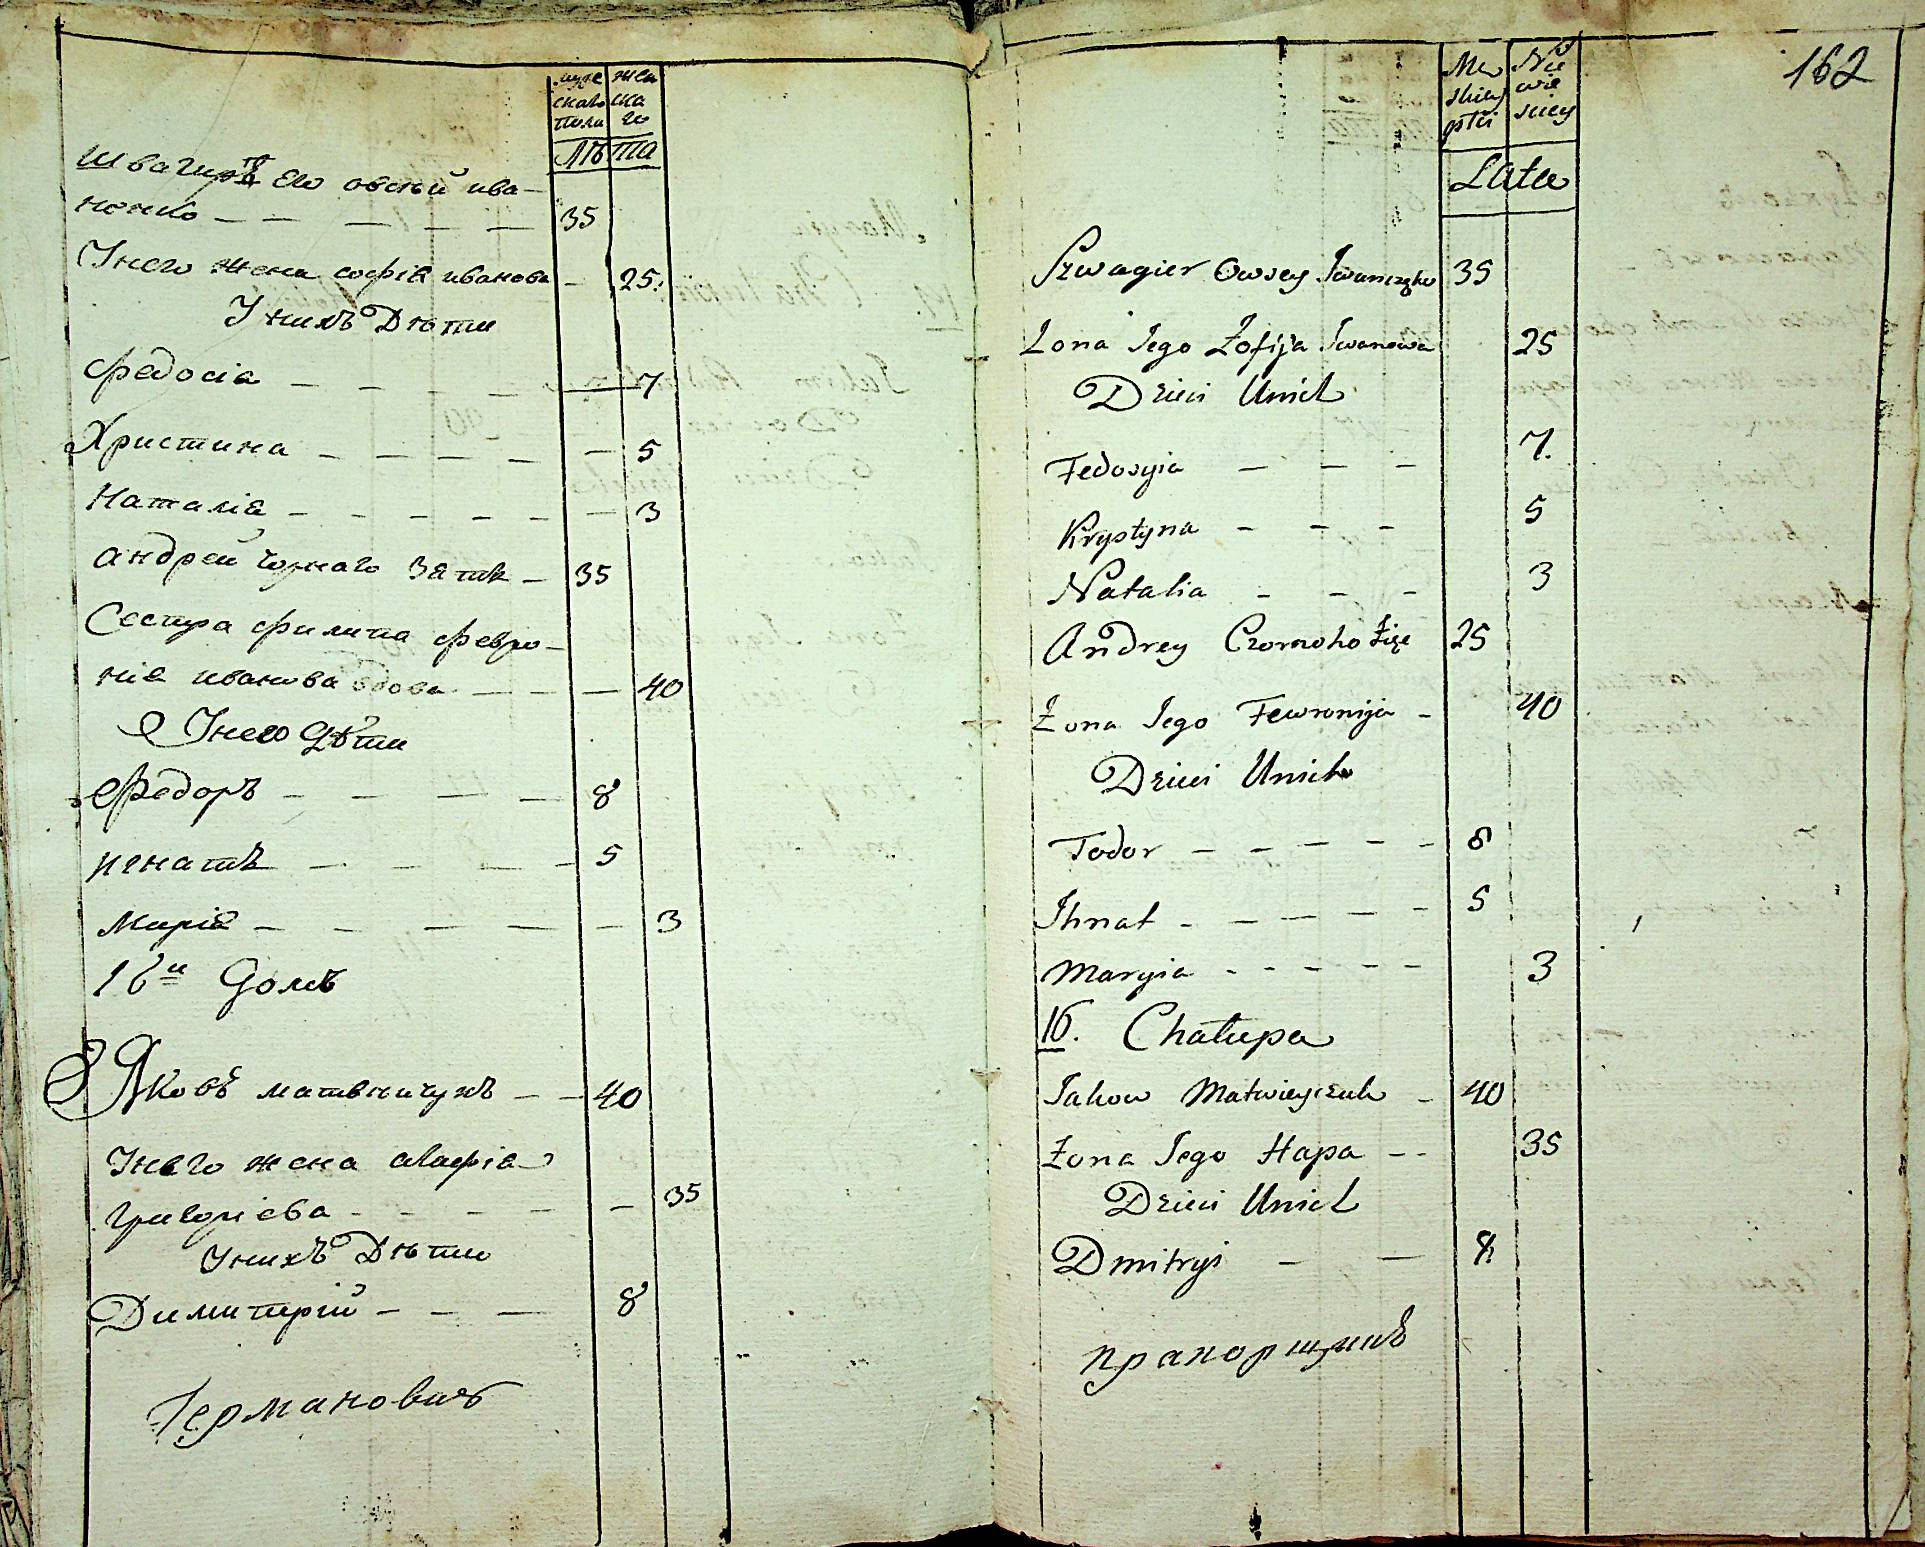 муже
скаго
пола
жен
ска
го
лѣта
швагиръ его овсѣй ива-
нонко — — — — — 35
Унего жена софіа иванова — 25.
Унихъ Дѣти
Федосіа — — — — — 7
Христина — — — — — 5
Наталіа — — — — — 3
андрей чорнаго зять — 35
Сестра филипа февро-
ніа иванова вдова — — — 40
Унево Дѣти
Федоръ — — — — 8
игнатъ — — — — 5
Маріа — — — — — 3
16й Домъ
Яковъ матвѣичукъ — — 40
Унего жена агафіа
григориева — — — — — 35
Унихъ Дѣти
Димитрій — — — 8
Германовичъ
162
Me
skiey
płci
Nie
wie
sciey
Lata
Szwagier Owsey Iwanczyko 35
Zona Iego Zofija Iwanowa 25
Dzieci Unich
Fedosyia — — — 7.
Krystyna — — — 5
Natalia — — — 3
Andrey Czornoho Zięć 25
Zona Iego Fewronija — 40
Dzieci Unich
Todor — — — — — 8
Ihnat — — — — — 5
Maryia — — — — — 3
16. Chałupa
Iakow Matwieyczuk — 40
Zona Iego Hapa — — 35
Dzieci Unich
Dmitryi — — 8.
прапорщикъ